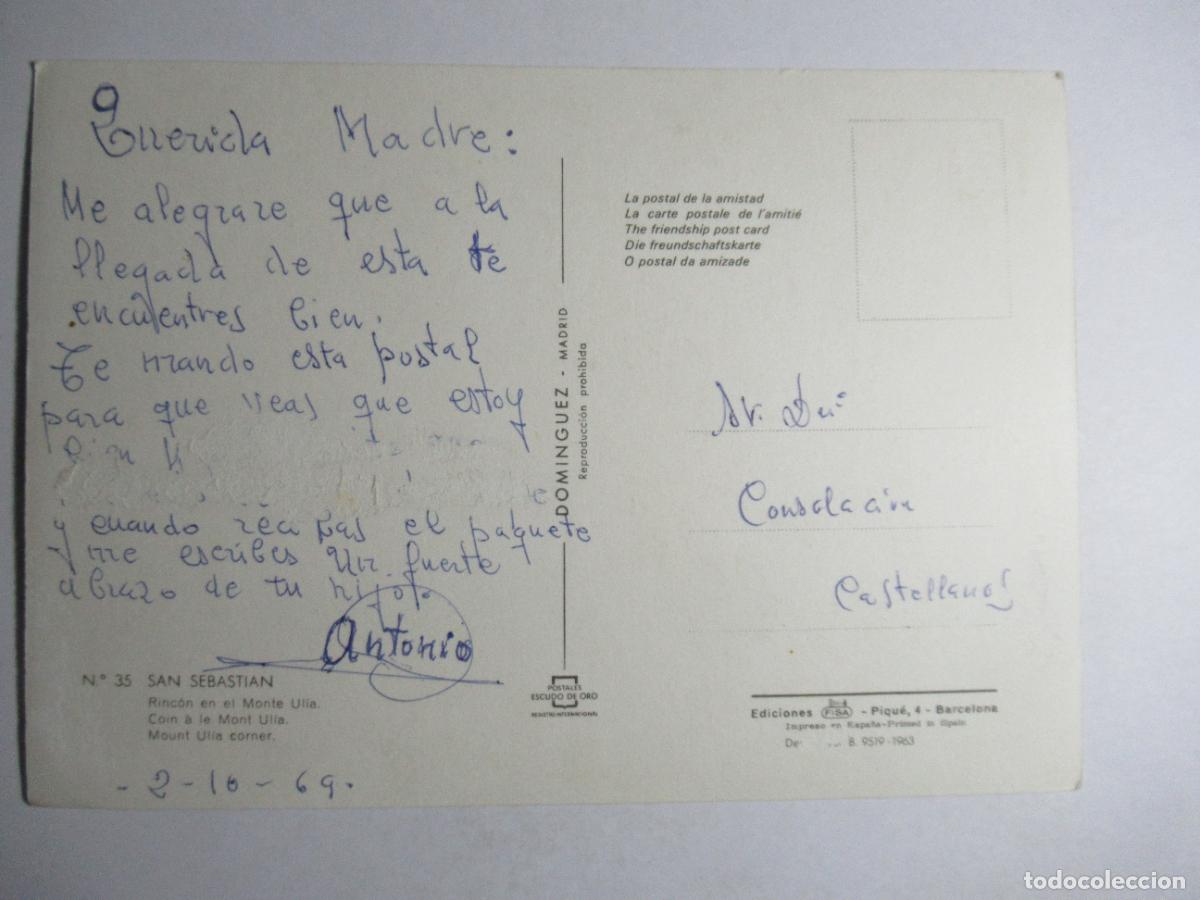 Querida Madre:
Me alegrare que a la
llegada de esta te
encuentres bien.
Te mando esta postal
para que veas que estoy
Bien
y cuando recibas el paquete
y me escribes un fuerte
abrazo de tu hijo.
Antonio
Nº 35 SAN SEBASTIAN
Rincón en el Monte Ulía.
Coin à le Mont Ulía.
Mount Ulía corner.
- 2-10-69.
DOMINGUEZ - MADRID
Reproducción prohibida
POSTALES
ESCUDO DE ORO
REGISTRO INTERNACIONAL
La postal de la amistad
La carte postale de l'amitié
The friendship post card
Die freundschaftskarte
O postal da amizade
Consolación
Castellanos
Ediciones FISA - Piqué, 4 - Barcelona
Impreso en España-Printed in Spain
De B. 9519-1963
todocoleccion